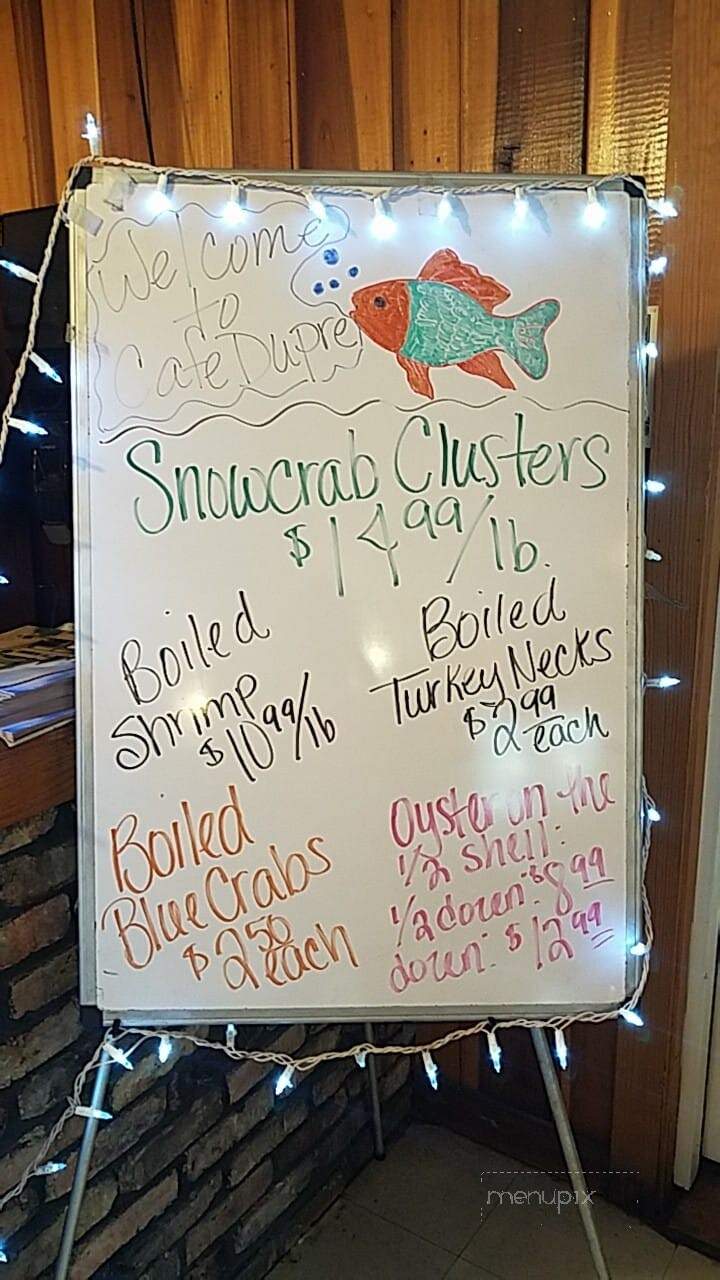 Welcome
to
Cafe Dupre
Snowcrab Clusters
$14.99/lb.
Boiled
Shrimp
$10.99/lb
Boiled
Turkey Necks
$2.99
each
Boiled
Blue Crabs
$2.50
each
Oyster on the
1/2 shell:
1/2 dozen: $8.99
dozen: $12.99
menupix